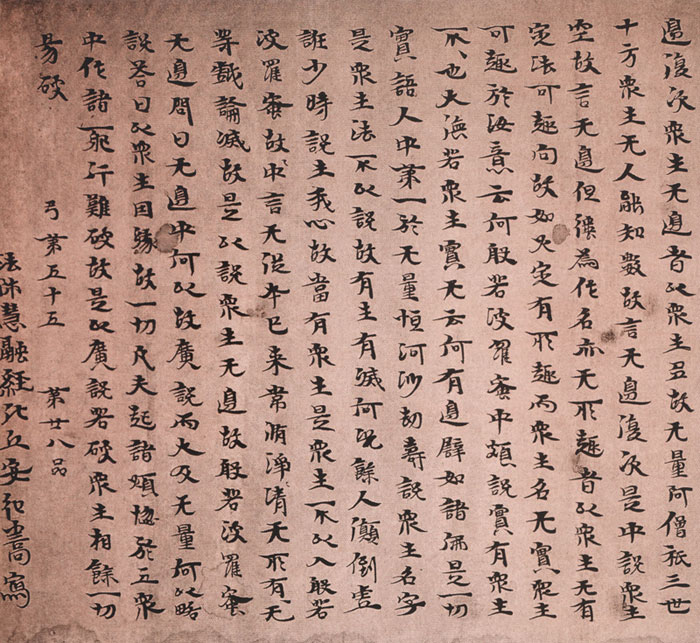 邊復次衆生无邊者以衆生多故无量阿僧祇三世
十方衆生无人能知數故言无邊復次是中說衆生
空故言无邊但彊為作名亦无所趣者以衆生无有
定法可趣向故如火定有所趣而衆生名无實衆生
可趣於汝意云何般若波羅蜜中頗說實有衆生
不〻也大德若衆生實无云何有邊譬如諸佛是一切
實語人中第一於无量恒河沙劫壽說衆生名字
是衆生法不以說故有生有滅何况餘人顛倒虛
誑少時說生我心故當有衆生是衆生不以入般若
波羅蜜故中言无從本已来常淨清无所有〻无
等戲論滅故是以說衆生无邊故般若波羅蜜
无邊問曰无邊中何以故廣說而大及无量何以略
說荅曰以衆生因緣故一切凡夫起諸煩惱於五衆
中作諸邪行難破故是以廣說若破衆生相餘一切
易破
弓第五十五 第廿八品
法師慧融經比丘安弘嵩寫